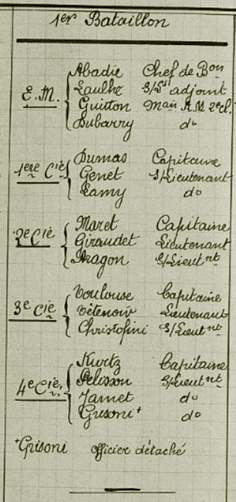 1er Bataillon
E.M. Abadie Chef de Bon
Laulhé S/Lt adjoint
Guitton
Dubarry do
1ere Cie Dumas Capitaine
Genet S/Lieutenant
Lamy do
2e Cie Maret Capitaine
Giraudet Lieutenant
Aragon S/Lieutnt
3e Cie Toulouse Capitaine
Lieutenant
Christofini S/Lieutnt
4e Cie Kurtz Capitaine
Pelisson S/Lieutnt
Jamet do
Grisoni+ do
+Grisoni Officier détaché